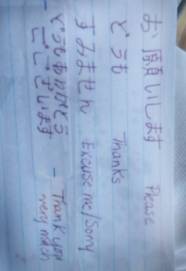 お願いします Please
どうも Thanks
すみません Excuse me/Sorry
どうもありがとう
ございます - Thank you
very much